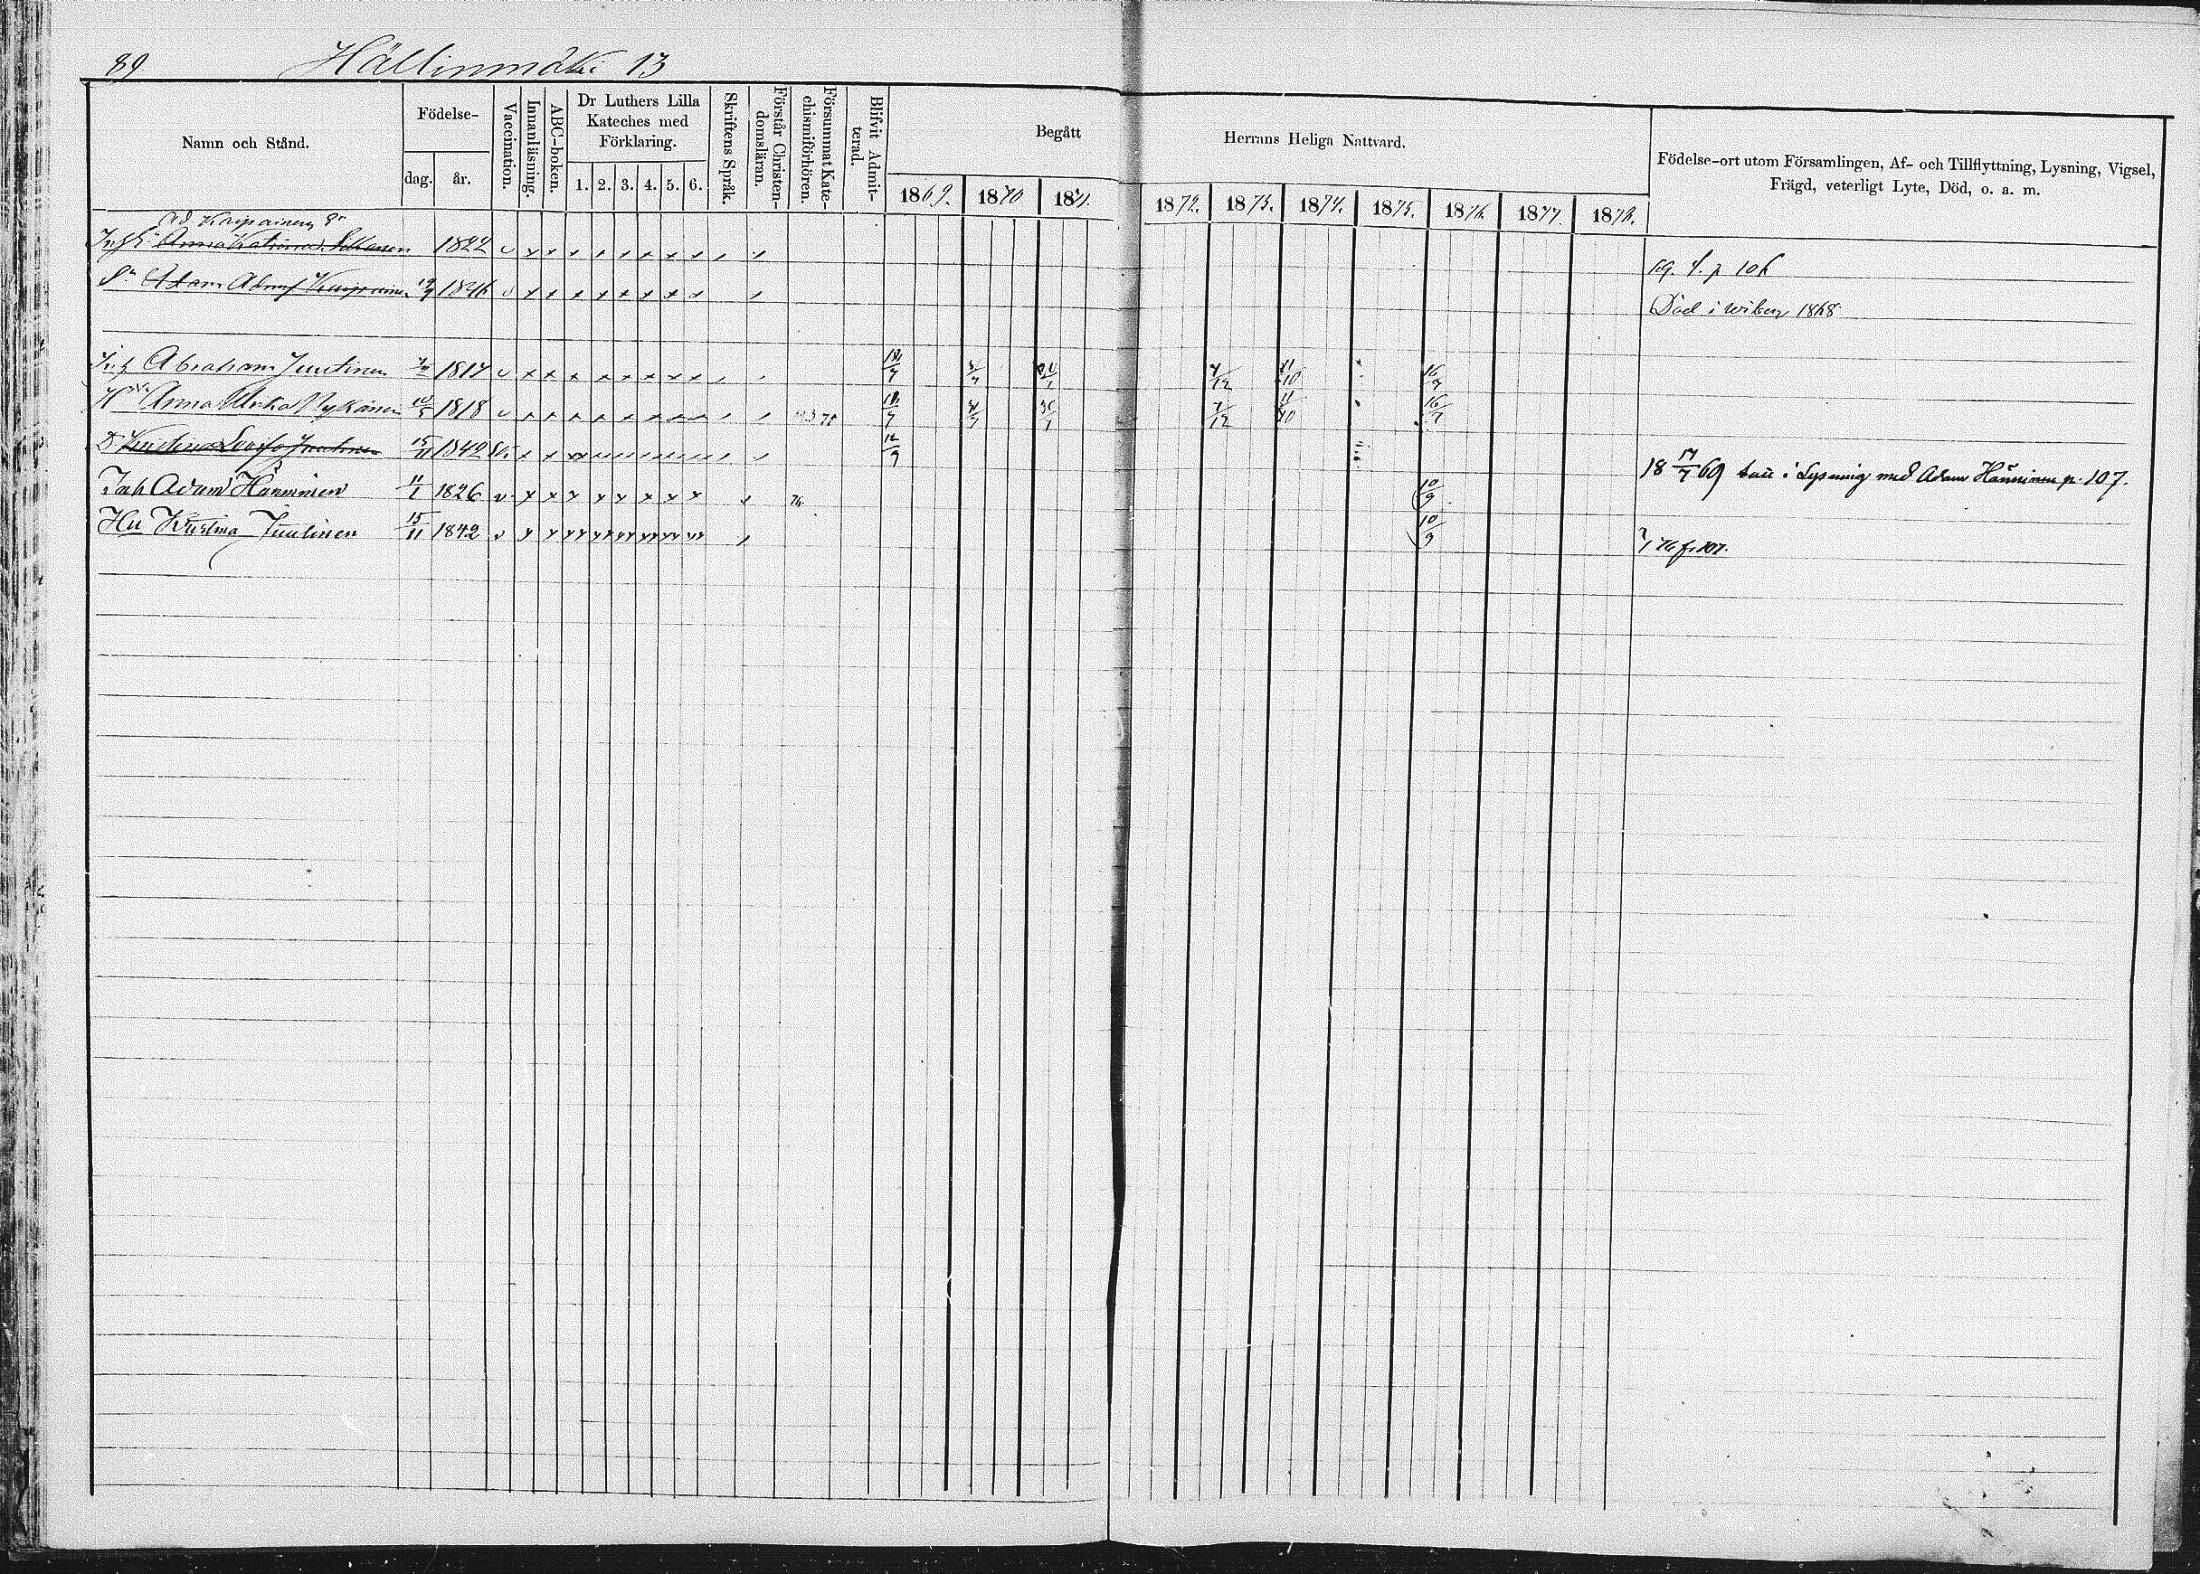 89 Hällinmäki 13
Namn och Stånd. Födelse- dag. år. Vaccination. Innanläsning. ABC-boken. Dr Luthers Lilla Kateches med Förklaring. 1. 2. 3. 4. 5. 6. Skriftens Språk. Förstår Christendomsläran. Försummat Katechismiförhören. Blifvit Admitterad. Begått Herrans Heliga Nattvard. 1869. 1870 1871. 1872. 1873. 1874. 1875. 1876. 1877. 1878. Födelse-ort utom Församlingen, Af- och Tillflyttning, Lysning, Vigsel, Frägd, veterligt Lyte, Död, o. a. m.
Ad. Kaupainen
Anna Katarina 1822
Sn Adam Kaupainen 1846 Död i Wiborg 1868
Inh Abraham Juutinen 1817 7/12 11/10 16/7
Hu Anna Ulrika Nykänen 10/5 1818 7/12 11/10 16/7
D Kristina Lovisa Juutinen 15/11 1842 18 17/7 69 tau i Lysning med Adam Hänninen p. 107.
Inh Adam Hänninen 11/1 1826 v 76 10/9
Hu Kristina Juutinen 15/11 1842 v 10/9 76 f. 107.